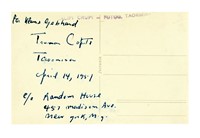 For Klaus Gebhard
Truman Capote
Taormina
April 14, 1951
c/o Random House
457 Madison Ave.
New York, N.Y.